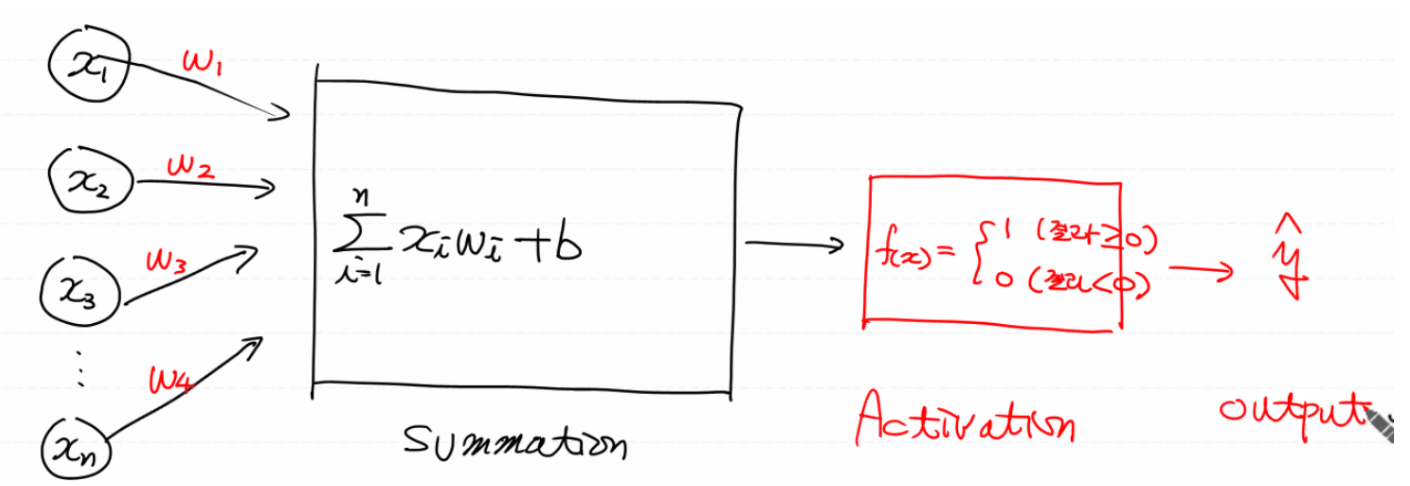 x₁ w₁
x₂ w₂
x₃ w₃
⋮
xₙ w₄
∑ⁿᵢ₌₁ xᵢwᵢ + b
Summation
f(x) = { 1 (결과≥0)
0 (결과<0)
Activation
ŷ
output